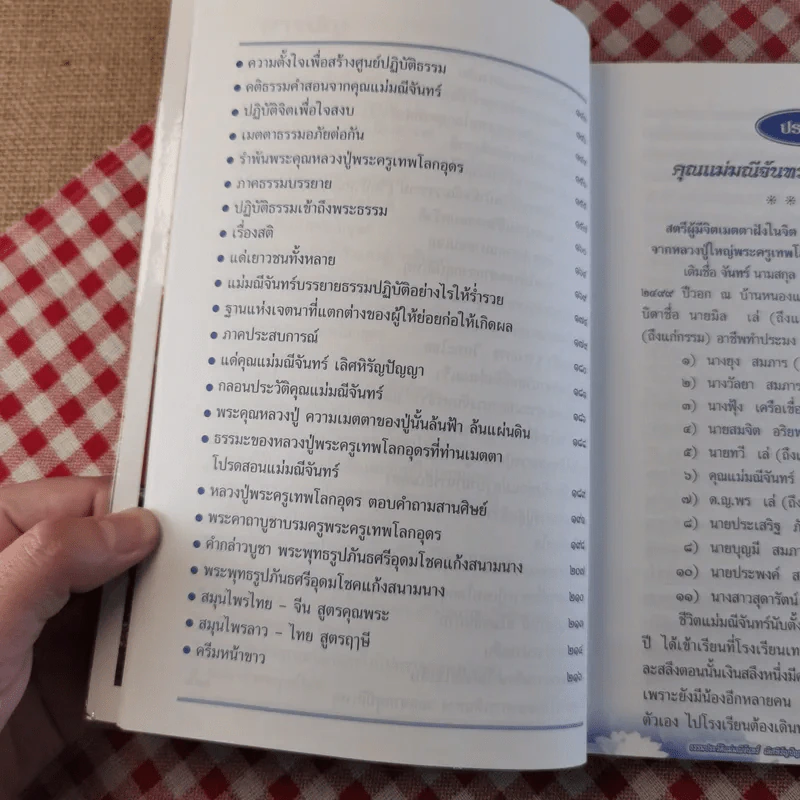 ความตั้งใจเพื่อสร้างศูนย์ปฏิบัติธรรม
คติธรรมคำสอนจากคุณแม่มณีจันทร์
ปฏิบัติจิตเพื่อใจสงบ
เมตตาธรรมอภัยต่อกัน
รำพันพระคุณหลวงปู่พระครูเทพโลกอุดร
ภาคธรรมบรรยาย
ปฏิบัติธรรมเข้าถึงพระธรรม
เรื่องสติ
แด่เยาวชนทั้งหลาย
แม่มณีจันทร์บรรยายธรรมปฏิบัติอย่างไรให้ร่ำรวย
ฐานแห่งเจตนาที่แตกต่างของผู้ให้ย่อยก่อให้เกิดผล
ภาคประสบการณ์
แด่คุณแม่มณีจันทร์ เลิศหิรัญปัญญา
กลอนประวัติคุณแม่มณีจันทร์
พระคุณหลวงปู่ ความเมตตาของปู่นั้นล้นฟ้า ล้นแผ่นดิน
ธรรมะของหลวงปู่พระครูเทพโลกอุดรที่ท่านเมตตา
โปรดสอนแม่มณีจันทร์
หลวงปู่พระครูเทพโลกอุดร ตอบคำถามสานศิษย์
พระคาถาบูชาบรมครูพระครูเทพโลกอุดร
คำกล่าวบูชา พระพุทธรูปภันธศรีอุดมโชคแก้งสนามนาง ๒๐๗
พระพุทธรูปภันธศรีอุดมโชคแก้งสนามนาง ๒๑๐
สมุนไพรไทย - จีน สูตรคุณพระ
สมุนไพรลาว - ไทย สูตรฤาษี ๒๑๔
ครีมหน้าขาว ๒๑๖
ประ
คุณแม่มณีจันทร
สตรีผู้มีจิตเมตตาฝังในจิต
จากหลวงปู่ใหญ่พระครูเทพโ
เดิมชื่อ จันทร์ นามสกุล
๒๔๙๙ ปีวอก ณ บ้านหนองแ
บิดาชื่อ นายมิล เล่ (ถึงแ
(ถึงแก่กรรม) อาชีพทำประมง
๑) นางยุง สมภาร (
๒) นางวัลยา สมภาร
๓) นางฟุ้ง เครือเชื่อ
๔) นายสมจิต อริยท
๕) นายทวี เล่ (ถึงแ
๖) คุณแม่มณีจันทร์
๗) ด.ญ.พร เล่ (ถึง
๘) นายประเสริฐ
๙) นายบุญมี สมภา
๑๐) นายประพงค์ ส
๑๑) นางสาวสุดารัตน์
ชีวิตแม่มณีจันทร์นับตั้ง
ปี ได้เข้าเรียนที่โรงเรียนเท
ละสลึงตอนนั้นเงินสลึงหนึ่งมีค
เพราะยังมีน้องอีกหลายคน
ตัวเอง ไปโรงเรียนต้องเดินท